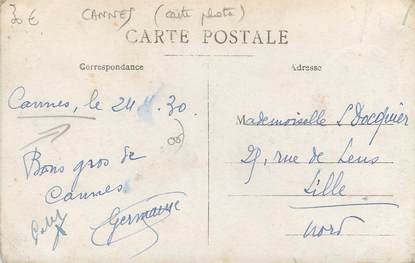 30€ CANNES (carte photo)
CARTE POSTALE
Correspondance
Adresse
Cannes, le 24 30.
Bons gros de
Cannes
Germaine
Mademoiselle L Docquier
25, rue de Lens
Lille
Nord